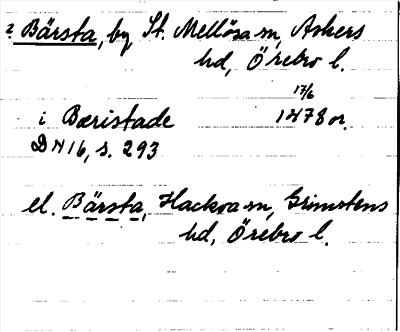 ? Bärsta, by, St. Mellösa sn, Askers
hd, Örebro l.
17/6
i Bæristade 1478 or.
DN 16, s. 293
el. Bärsta, Hackva sn, Grimstens
hd, Örebro l.